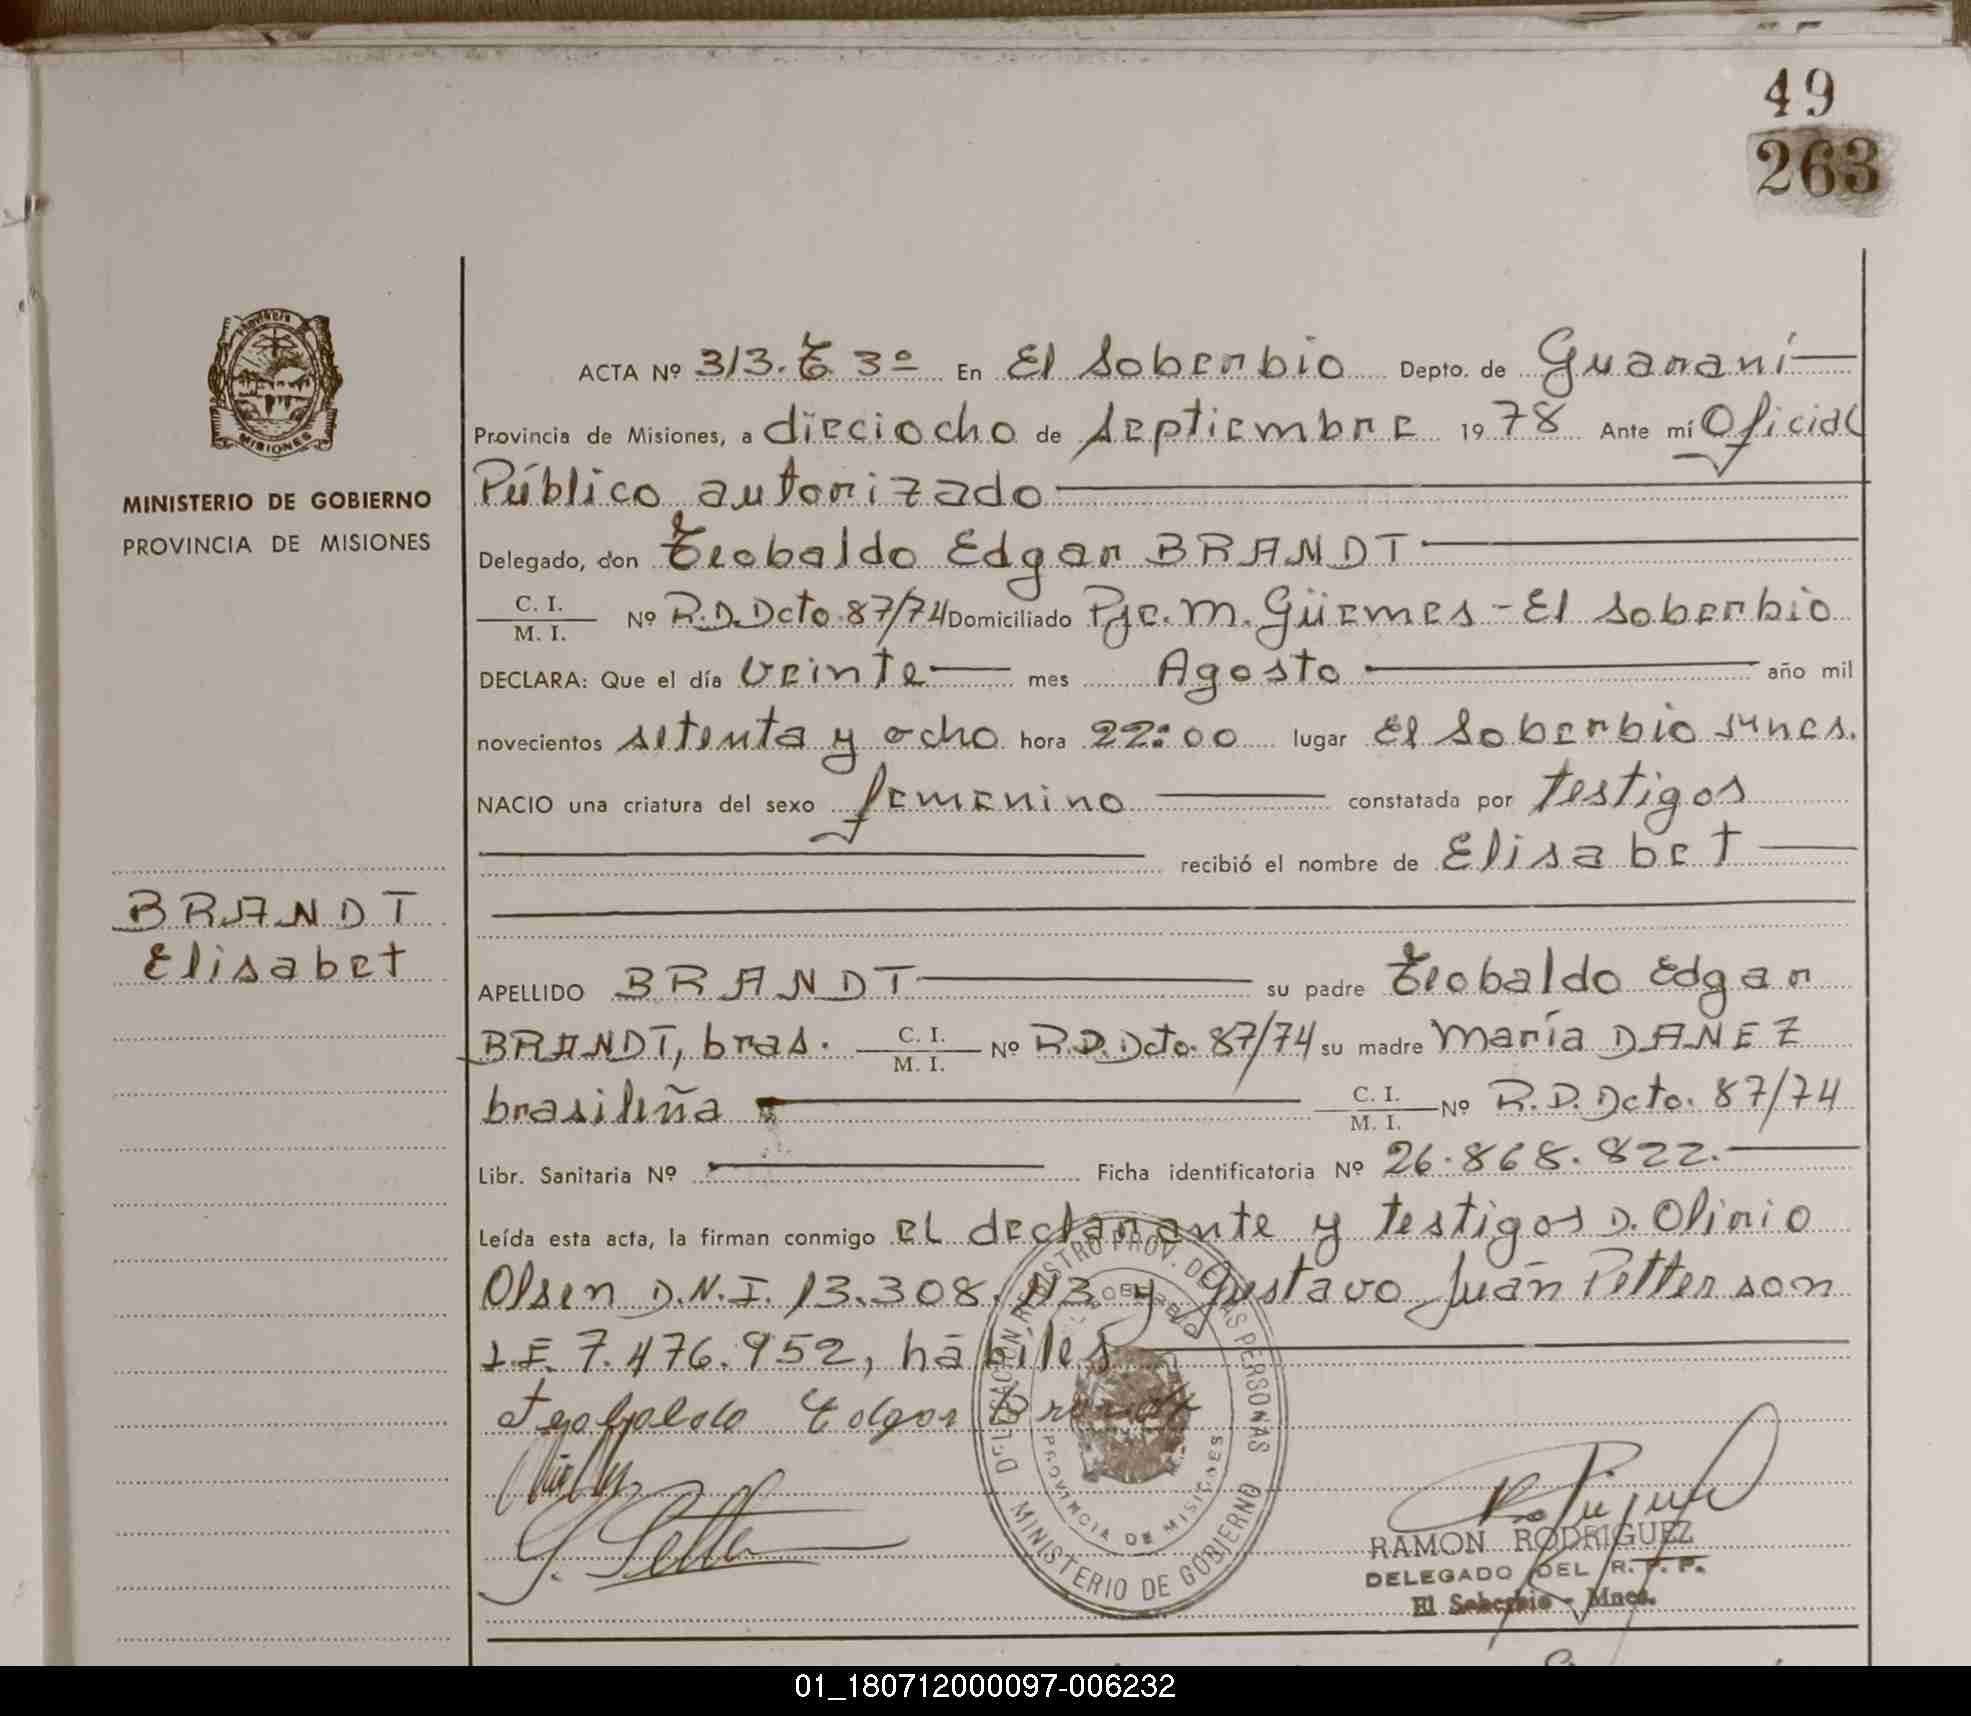 49
263
Provincia
MISIONES
MINISTERIO DE GOBIERNO
PROVINCIA DE MISIONES
BRANDT
Elisabet
ACTA Nº 313. T. 3º En El Soberbio Depto. de Guaraní
Provincia de Misiones, a dieciocho de septiembre 1978 Ante mí Oficial
Público autorizado
Delegado, don Teobaldo Edgar BRANDT
C. I.
M. I. Nº R.D. Dcto. 87/74 Domiciliado Pje. M. Güemes - El Soberbio
DECLARA: Que el día veinte mes Agosto año mil
novecientos setenta y ocho hora 22:00 lugar El Soberbio Mnes.
NACIO una criatura del sexo femenino constatada por testigos
recibió el nombre de Elisabet
APELLIDO BRANDT su padre Teobaldo Edgar
BRANDT, bras. C. I. M. I. Nº R.D. Dcto. 87/74 su madre María DANEZ
brasileña C. I. M. I. Nº R.D. Dcto. 87/74
Libr. Sanitaria Nº Ficha identificatoria Nº 26.868.822.
Leída esta acta, la firman conmigo el declarante y testigos D. Olirio
Olsen D.N.I. 13.308.113 y Gustavo Juan Petterson
L.E. 7.476.952, hábiles
Teobaldo Edgar Brandt
G. Petter
DELEGACION REGISTRO PROV. DE LAS PERSONAS
EL SOBERBIO
PROVINCIA DE MISIONES
MINISTERIO DE GOBIERNO
RAMON RODRIGUEZ
DELEGADO DEL R. P. P.
El Soberbio - Mnes.
01_180712000097-006232